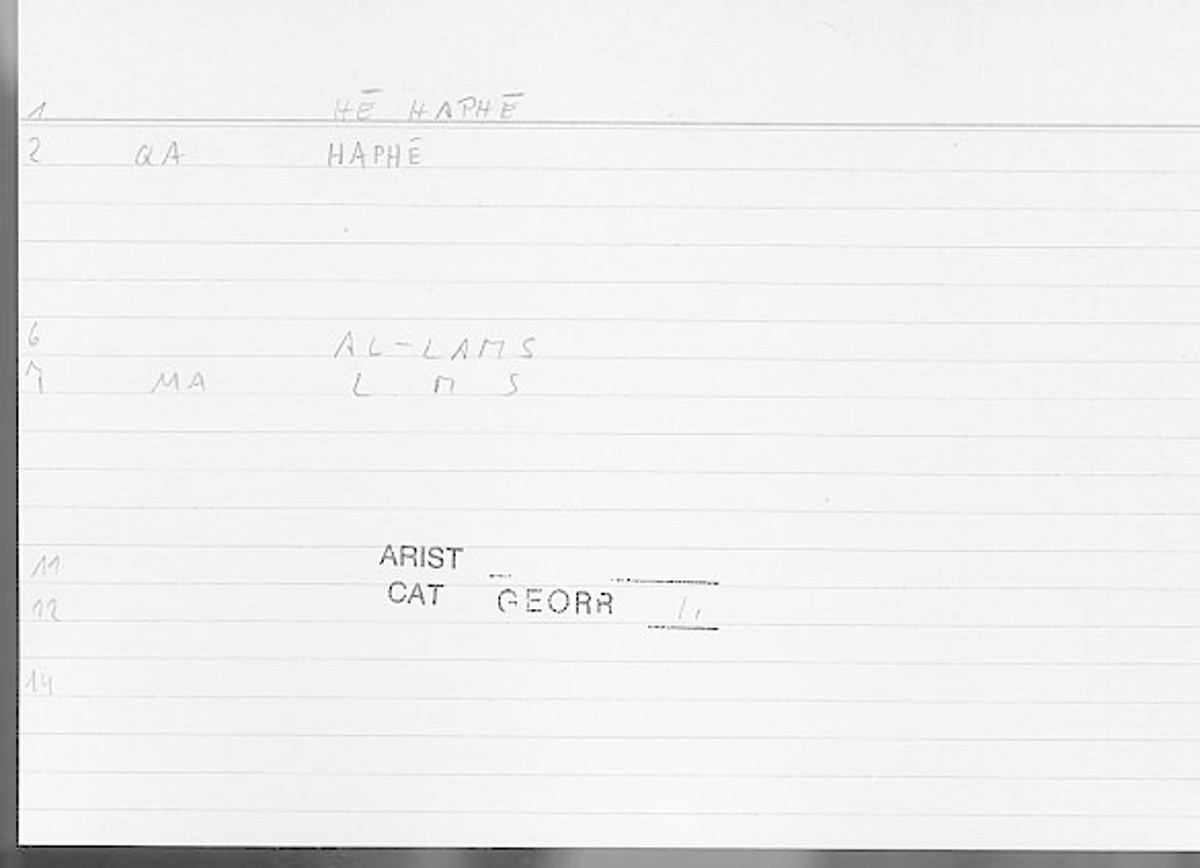 1 HĒ HAPHĒ
2 QA HAPHĒ
6 AL-LAMS
7 MA L M S
11 ARIST
12 CAT GEORR
14